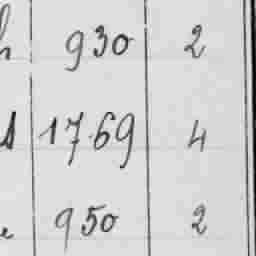 h 930 2
s 1769 4
e 950 2